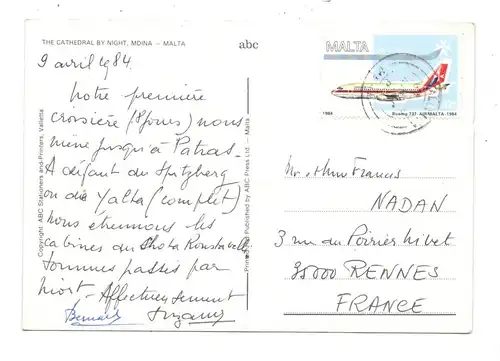 THE CATHEDRAL BY NIGHT, MDINA — MALTA
abc
9 avril 1984.
Notre première
croisière (8 jours) nous
mène jusqu'à Patras.
A défaut du Spitzberg
ou de Yalta (complet)
nous étrennons les
cabines du Shota
sommes passés par
Affectueusement
Bernard Suzanne
Copyright. ABC Stationers and Printers, Valletta
Printed & Published by ABC Press Ltd. — Malta
MALTA
1984 Boeing 737 - AIR MALTA - 1984
Mr et Mme Francis
NADAN
3 rue du Poirier
35000 RENNES
FRANCE